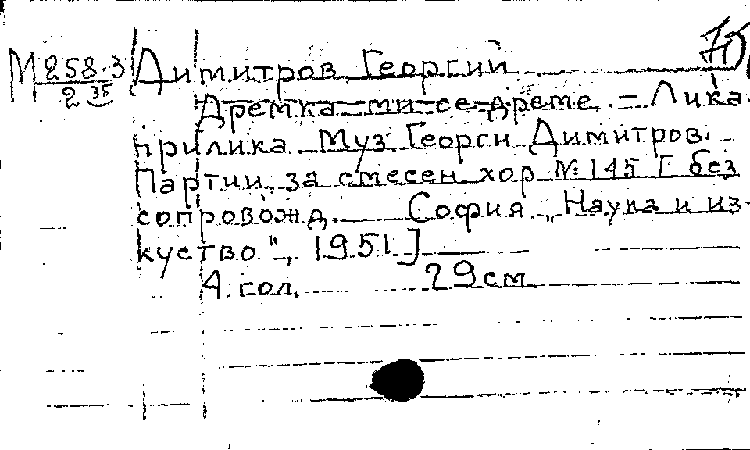 М 258-3 Димитров Георгий
2 35 Дремка ми се дреме. - Лика
прилика. Муз Георги Димитров.
Партии за смесен хор № 145 [ без
сопровожд. София „Наука и из-
куство", 1951]
4. гол. 29 см